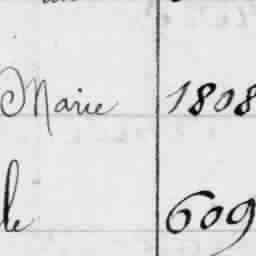 Marie 1808
le 609